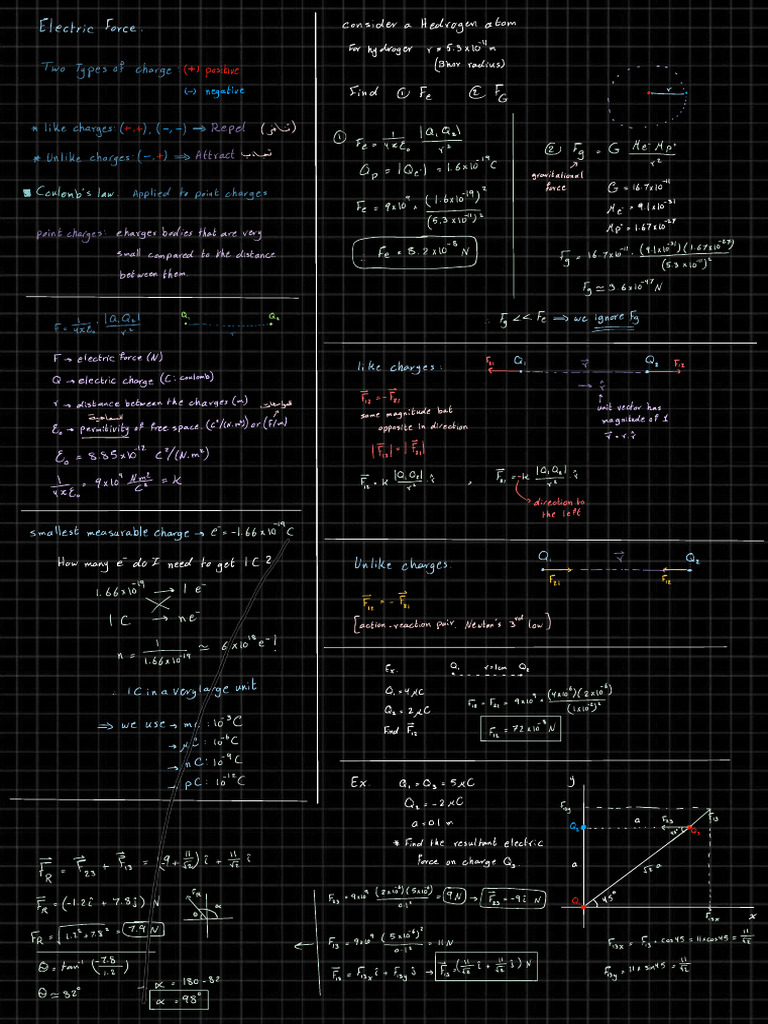 Electric Force.
Two Types of charge: (+) positive
(-) negative
* like charges: (+,+), (-,-) ⇒ Repel (تنافر)
* Unlike charges: (-,+) ⇒ Attract تجاذب
Coulomb's law. Applied to point charges
point charges: charges bodies that are very
small compared to the distance
between them.
F = 1/4πε₀ · |Q₁Q₂|/r²
Q₁ r Q₂
F → electric force (N)
Q → electric charge (C: coulomb)
r → distance between the charges (m)
ε₀ → permitivity of free space. (C²/(N.m²)) or (F/m)
ε₀ = 8.85x10⁻¹² C²/(N.m²)
1/4πε₀ = 9x10⁹ Nm²/C² = K
smallest measurable charge → e⁻ = -1.66x10⁻¹⁹ C
How many e⁻ do I need to get 1C?
1.66x10⁻¹⁹ → 1 e⁻
1 C → n e⁻
n = 1/1.66x10⁻¹⁹ ≃ 6x10¹⁸ e⁻!
∴ 1C in a very large unit
⇒ we use → mC: 10⁻³C
→ μC: 10⁻⁶C
→ nC: 10⁻⁹C
→ pC: 10⁻¹²C
consider a Hedrogen atom
For hydroger r = 5.3x10⁻¹¹ m
(Bhor radius)
Find ① Fe ② FG
r
① Fe = 1/4πε₀ |Q₁Q₂|/r²
Qp = |Qe⁻| = 1.6x10⁻¹⁹C
Fe = 9x10⁹ × (1.6x10⁻¹⁹)²/(5.3x10⁻¹¹)²
∴ Fe = 8.2x10⁻⁸ N
② Fg = G Me⁻ Mp⁺/r²
gravitational
force
G = 16.7x10⁻¹¹
Me⁻ = 9.1x10⁻³¹
Mp⁺ = 1.67x10⁻²⁷
Fg = 16.7x10⁻¹¹ · (9.1x10⁻³¹)(1.67x10⁻²⁷)/(5.3x10⁻¹¹)²
Fg ≃ 3.6x10⁻⁴⁷ N
∴ Fg << Fe ⇒ we ignore Fg
like charges:
F₂₁ Q₁ r Q₂ F₁₂
→ r̂
unit vector has
magnitude of 1
r⃗ = r.r̂
F⃗₁₂ = -F⃗₂₁
same magnitude but
opposite in direction
|F⃗₁₂| = |F⃗₂₁|
F⃗₁₂ = K |Q₁Q₂|/r² · r̂ , F⃗₂₁ = -K |Q₁Q₂|/r² · r̂
direction to
the left
Unlike charges:
Q₁ r⃗ Q₂
F₂₁ F₁₂
F⃗₁₂ = - F⃗₂₁
[action-reaction pair. Newton's 3rd low]
Ex. Q₁ r=1cm Q₂
Q₁ = 4μC
Q₂ = 2μC
Find F⃗₁₂
F₁₂ = F₂₁ = 9x10⁹ × (4x10⁻⁶)(2x10⁻⁶)/(1x10⁻²)²
F₁₂ = 72x10⁻⁸ N
Ex. Q₁ = Q₃ = 5μC
Q₂ = -2μC
a = 0.1 m
* Find the resultant electric
force on charge Q₃.
y
F₁₃y F₁₃
Q₂ a F₂₃ Q₃
a √2 a
Q₁ 45°
F₁₃x x
F₁₃x = F₁₃ cos45 = 11xcos45 = 11/√2
F₁₃y = 11 x sin45 = 11/√2
F₂₃ = 9x10⁹ (2x10⁻⁶)(5x10⁻⁶)/0.1² = 9N → F⃗₂₃ = -9i N
F₁₃ = 9x10⁹ (5x10⁻⁶)²/0.1² = 11N
F⃗₁₃ = F₁₃x i + F₁₃y j → F⃗₁₃ = (11/√2 i + 11/√2 j) N
F⃗R = F⃗₂₃ + F⃗₁₃ = (-9 + 11/√2) i + 11/√2 j
F⃗R = (-1.2i + 7.8j) N
FR = √1.2²+7.8² = 7.9 N
FR θ α
θ = tan⁻¹ (-7.8/1.2)
θ ≃ 82°
α = 180-82
α = 98°